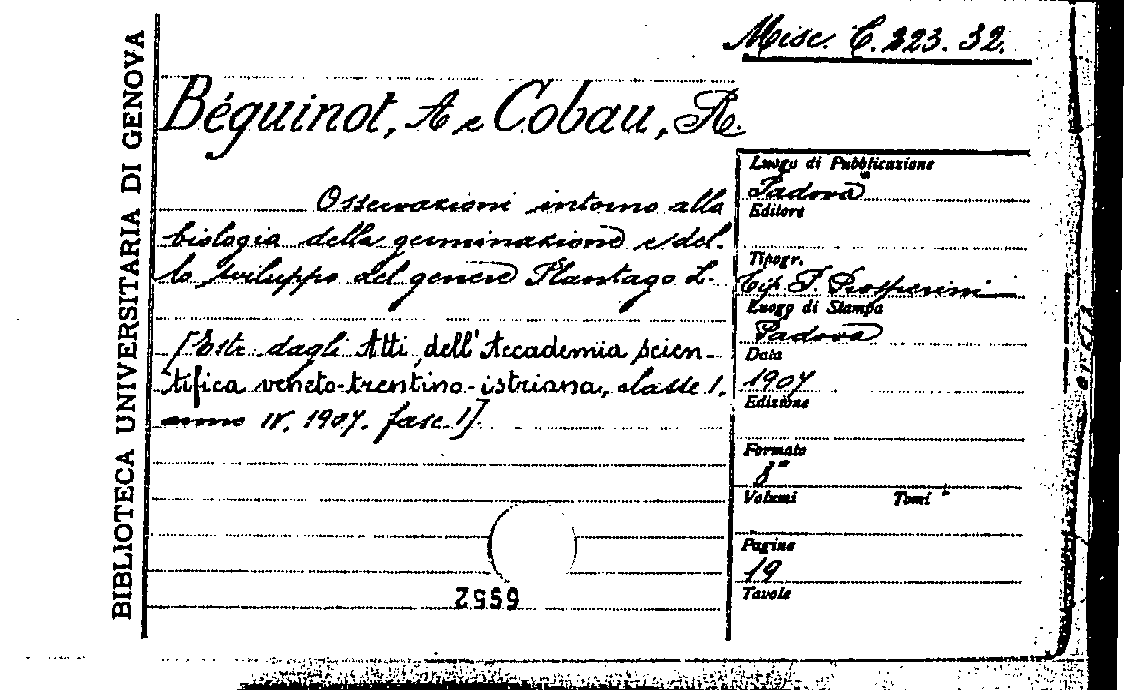 Misc. C. 223. 32.
BIBLIOTECA UNIVERSITARIA DI GENOVA
Béguinot, A e Cobau, R.
Osservazioni intorno alla
biologia della germinazione e del-
lo sviluppo del genere Plantago L.
[Estr. dagli Atti dell'Accademia scien-
tifica veneto-trentino-istriana, classe I.
anno IV. 1907. fasc. I].
Luogo di Pubblicazione
Padova
Editore
Tipogr.
Tip. P. Prosperini
Luogo di Stampa
Padova
Data
1907
Edizione
Formato
8°
Volumi Tomi
Pagine
19
Tavole